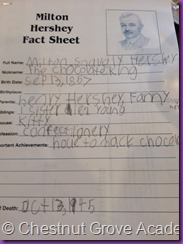 Milton
Hershey
Fact Sheet
Full Name: Milton Snavely Hershey
Nickname: The chocolate King
Birth Date: Sep 13, 1857
Birthplace:
Parents: henry Hershey, Fanny
Kitty
confectionery
ortant Achievements: how to mack chocol
f Death: Oct 13, 1945
© Chestnut Grove Acade